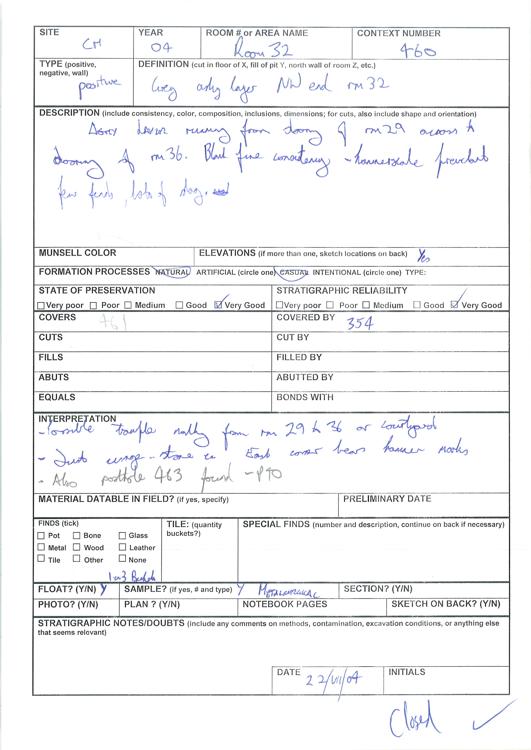 SITE YEAR ROOM # or AREA NAME CONTEXT NUMBER
CH 04 Room 32 460
TYPE (positive, negative, wall) DEFINITION (cut in floor of X, fill of pit Y, north wall of room Z, etc.)
positive Grey ashy layer NW end rm 32
DESCRIPTION (include consistency, color, composition, inclusions, dimensions; for cuts, also include shape and orientation)
Ashy layer running from doorway of rm 29 across to
doorway of rm 36. Black fine consistency - hammerscale prevalent
few finds, lots of slag.
MUNSELL COLOR ELEVATIONS (if more than one, sketch locations on back) Yes
FORMATION PROCESSES NATURAL ARTIFICIAL (circle one) CASUAL INTENTIONAL (circle one) TYPE:
STATE OF PRESERVATION STRATIGRAPHIC RELIABILITY
Very poor Poor Medium Good Very Good Very poor Poor Medium Good Very Good
COVERS 461 COVERED BY 354
CUTS CUT BY
FILLS FILLED BY
ABUTS ABUTTED BY
EQUALS BONDS WITH
INTERPRETATION
- Possible trample from rm 29 to 36 or courtyard
- stone in East corner bears hammer marks
- Also posthole 463 found - P40
MATERIAL DATABLE IN FIELD? (if yes, specify) PRELIMINARY DATE
FINDS (tick) TILE: (quantity buckets?) SPECIAL FINDS (number and description, continue on back if necessary)
Pot Bone Glass
Metal Wood Leather
Tile Other None
1 in 3 Buckets
FLOAT? (Y/N) Y SAMPLE? (if yes, # and type) Y METALLURGICAL SECTION? (Y/N)
PHOTO? (Y/N) PLAN ? (Y/N) NOTEBOOK PAGES SKETCH ON BACK? (Y/N)
STRATIGRAPHIC NOTES/DOUBTS (include any comments on methods, contamination, excavation conditions, or anything else
that seems relevant)
DATE 22/VII/04 INITIALS
Closed